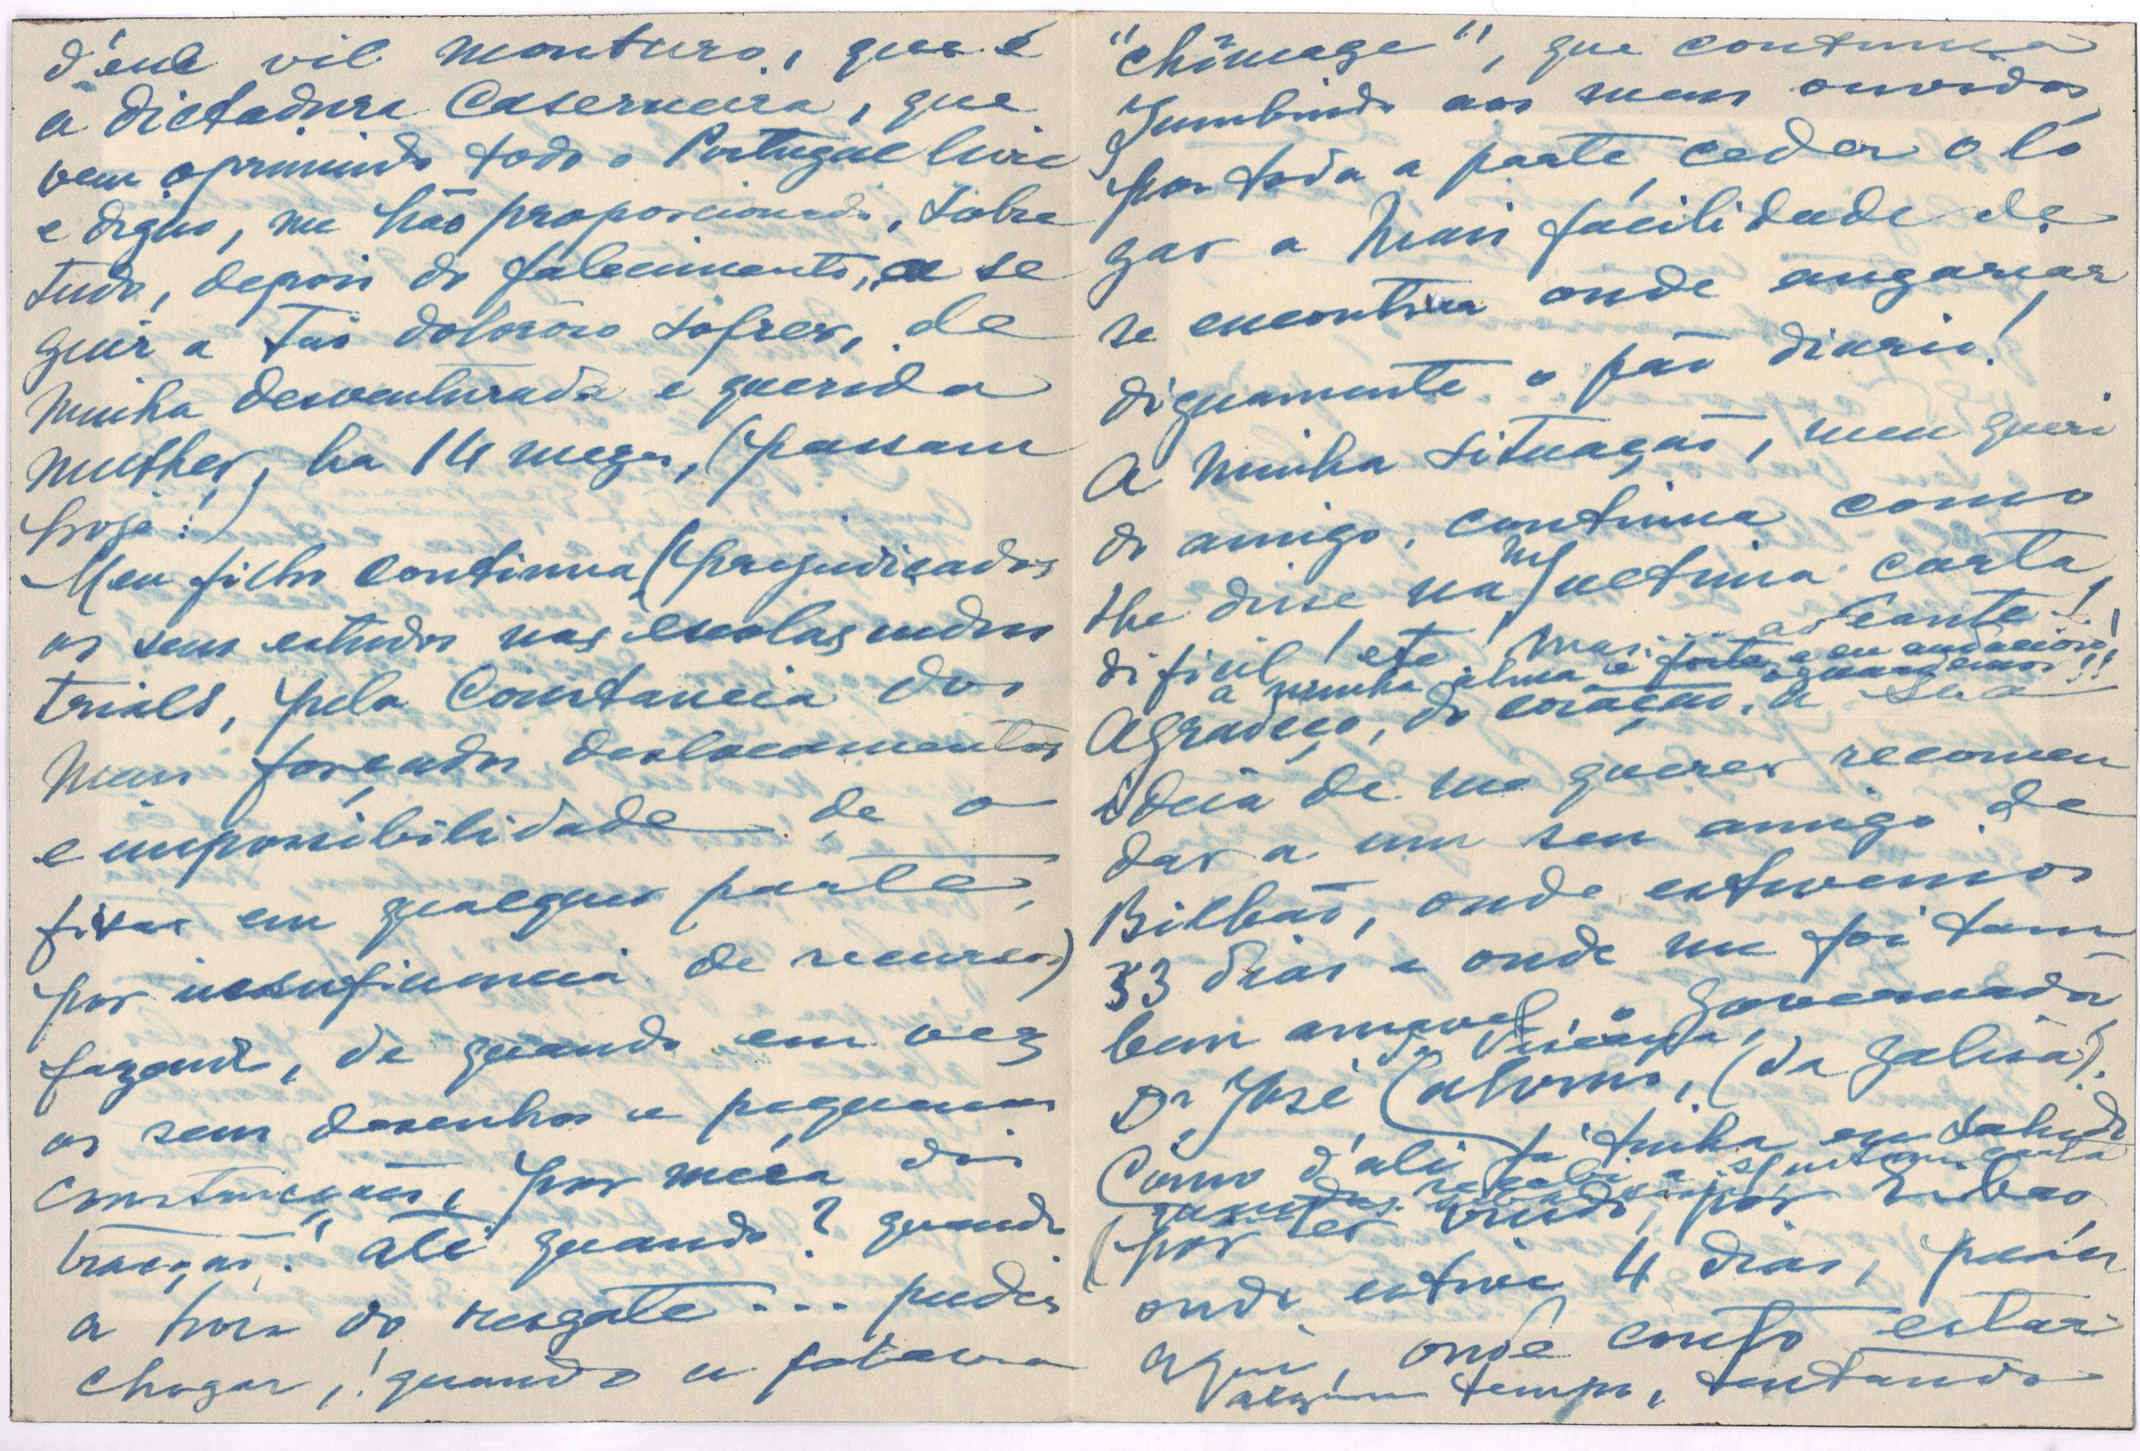 d'ele vil monturo, que é
a dictadura Caserneira, que
vem oprimindo todo o Portugue livre
e digno, me hão proporcionado, sobre
tudo, depois do falecimento, a se
guir a tão doloroso sofrer, de
minha desventurada e querida
mulher, ha 14 mezes, (passam
hoje!)
Meu filho continua (prejudicados
os seus estudos nas escolas indus
triaes, pela Constancia dos
meus forçados deslocamentos
e impossibilidade de o
fixar em qualquer parte,
por insuficiencia de recursos)
fazendo, de quando em vez
os seus desenhos e pequenas
construcções, por mera dis
tracção. Até quando? quando
a hora do resgate... puder
chegar,! quando a palavra
"chômage", que continua
zumbindo aos meus ouvidos,
por toda a parte, ceder o lo
gar a mais facilidade de
se encontrar onde angariar
dignamente o pão diario!
A minha situação, meu queri
do amigo, continua como
lhe disse na mª ultima carta,
dificil! etc! mas... adeante!
a minha alma é forte, e eu audacioso!
aguardemos!!
Agradeço, do coração, a sua
ideia de me querer recomen
dar a um seu amigo de
Bilbão, onde estivemos
33 dias e onde me foi tam
bem amavel, o Governador,
Dr José Calviño, (da Galisa).
Como d'ali já tinha eu sahido
quando recebi a sua carta
(por ter vindo, por
onde estive 4 dias, para
aqui, onde conto estar
algum tempo, tentando